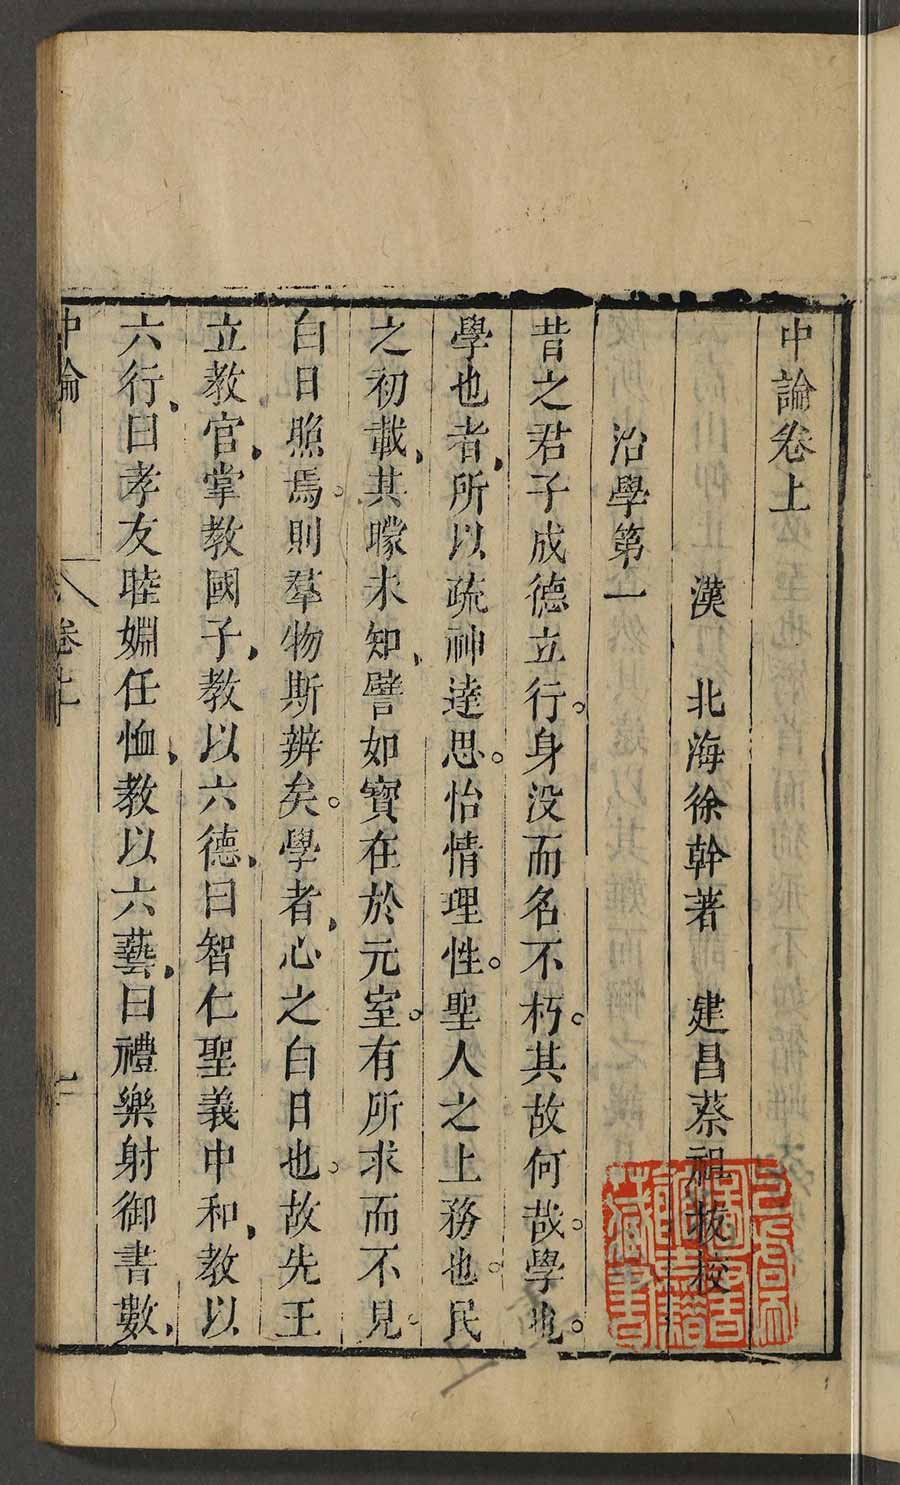 中論卷上
漢 北海徐幹著 建昌蔡祖拔校
治學第一
昔之君子成德立行。身沒而名不朽。其故何哉。學也。
學也者、所以疏神達思。怡情理性。聖人之上務也。民
之初載、其曚未知、譬如寶在於元室。有所求而不見。
白日照焉。則羣物斯辨矣。學者、心之白日也。故先王
立教官、掌教國子、教以六德、曰智仁聖義中和、教以
六行、曰孝友睦婣任恤、教以六藝、曰禮樂射御書數、
中論 卷上